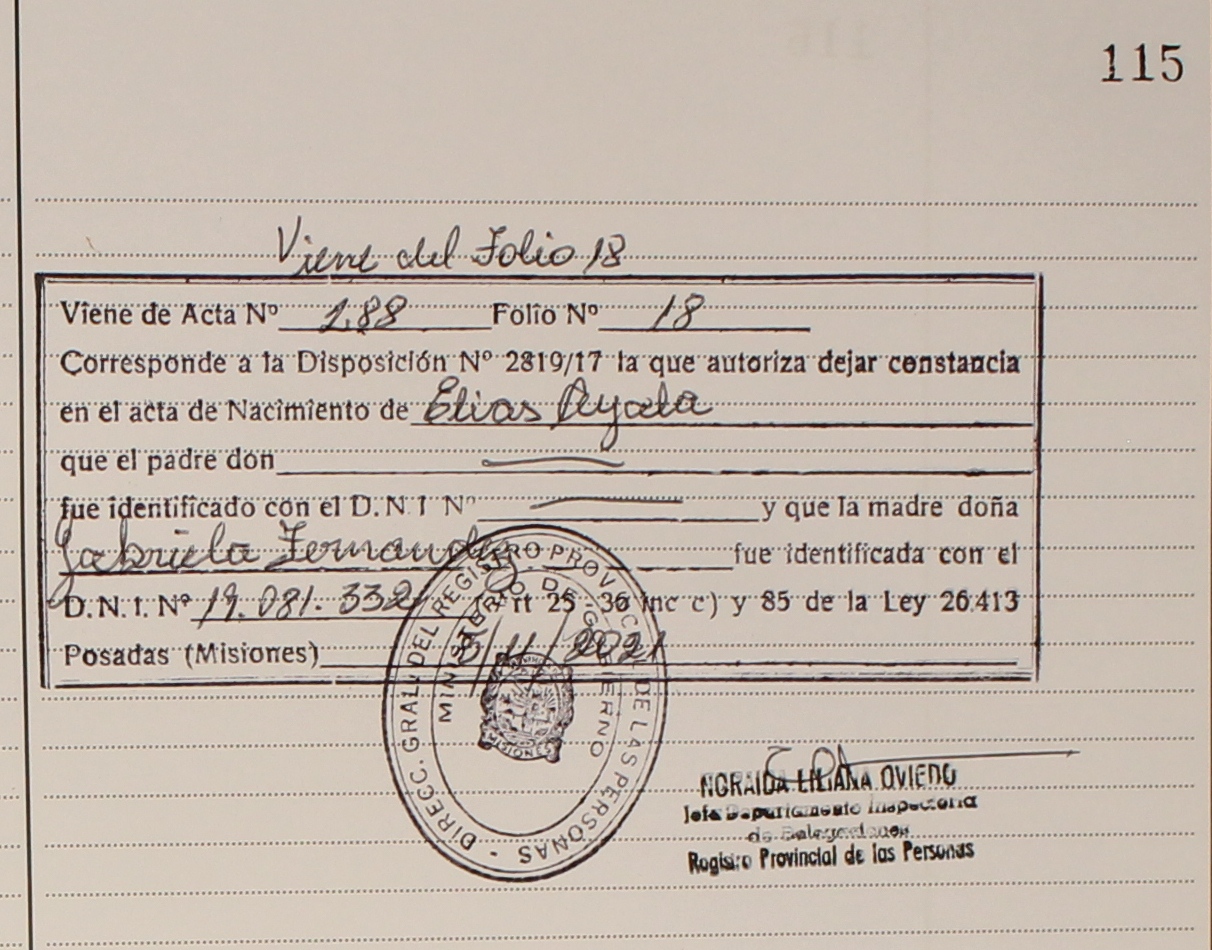 115
Viene del Folio 18
Viene de Acta Nº 188 Folio Nº 18
Corresponde a la Disposición Nº 2819/17 la que autoriza dejar constancia
en el acta de Nacimiento de Elias Ayala
que el padre don
fue identificado con el D.N.I Nº y que la madre doña
Gabriela Fernandez fue identificada con el
D.N.I. Nº 19.081.332 (Art 25 - 36 inc c) y 85 de la Ley 26.413
Posadas (Misiones) 5/11/2021
DIRECC. GRAL. DEL REGISTRO PROVINCIAL DE LAS PERSONAS -
MINISTERIO DE GOBIERNO
MISIONES
NORAIDA LILIANA OVIEDO
Jefa Departamento Inspectoria
de Delegaciones
Registro Provincial de las Personas